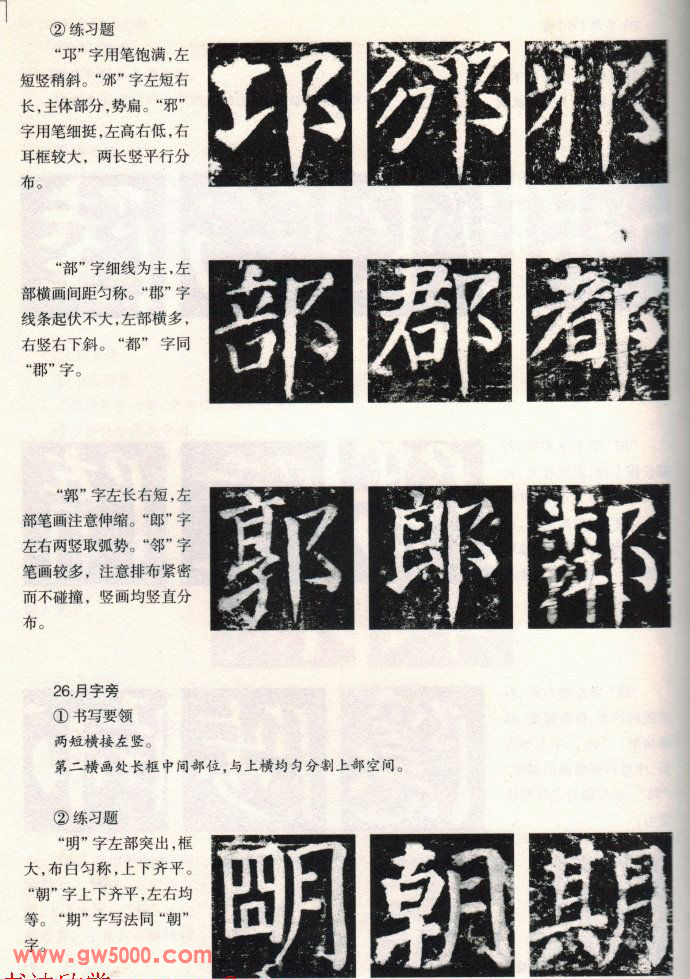 ② 练习题
“邛”字用笔饱满,左
短竖稍斜。“邠”字左短右
长,主体部分,势扁。“邪”
字用笔细挺,左高右低,右
耳框较大，两长竖平行分
布。
邛 邠 邪
“部”字细线为主,左
部横画间距匀称。“郡”字
线条起伏不大,左部横多,
右竖右下斜。“都” 字同
“郡”字。
部 郡 都
“郭”字左长右短,左
部笔画注意伸缩。“郎”字
左右两竖取弧势。“邻”字
笔画较多，注意排布紧密
而不碰撞，竖画均竖直分
布。
郭 郎 鄰
26.月字旁
① 书写要领
两短横接左竖。
第二横画处长框中间部位,与上横均匀分割上部空间。
② 练习题
“明”字左部突出,框
大,布白匀称,上下齐平。
“朝”字上下齐平,左右均
等。“期”字写法同“朝”
字。
明 朝 期
www.gw5000.com